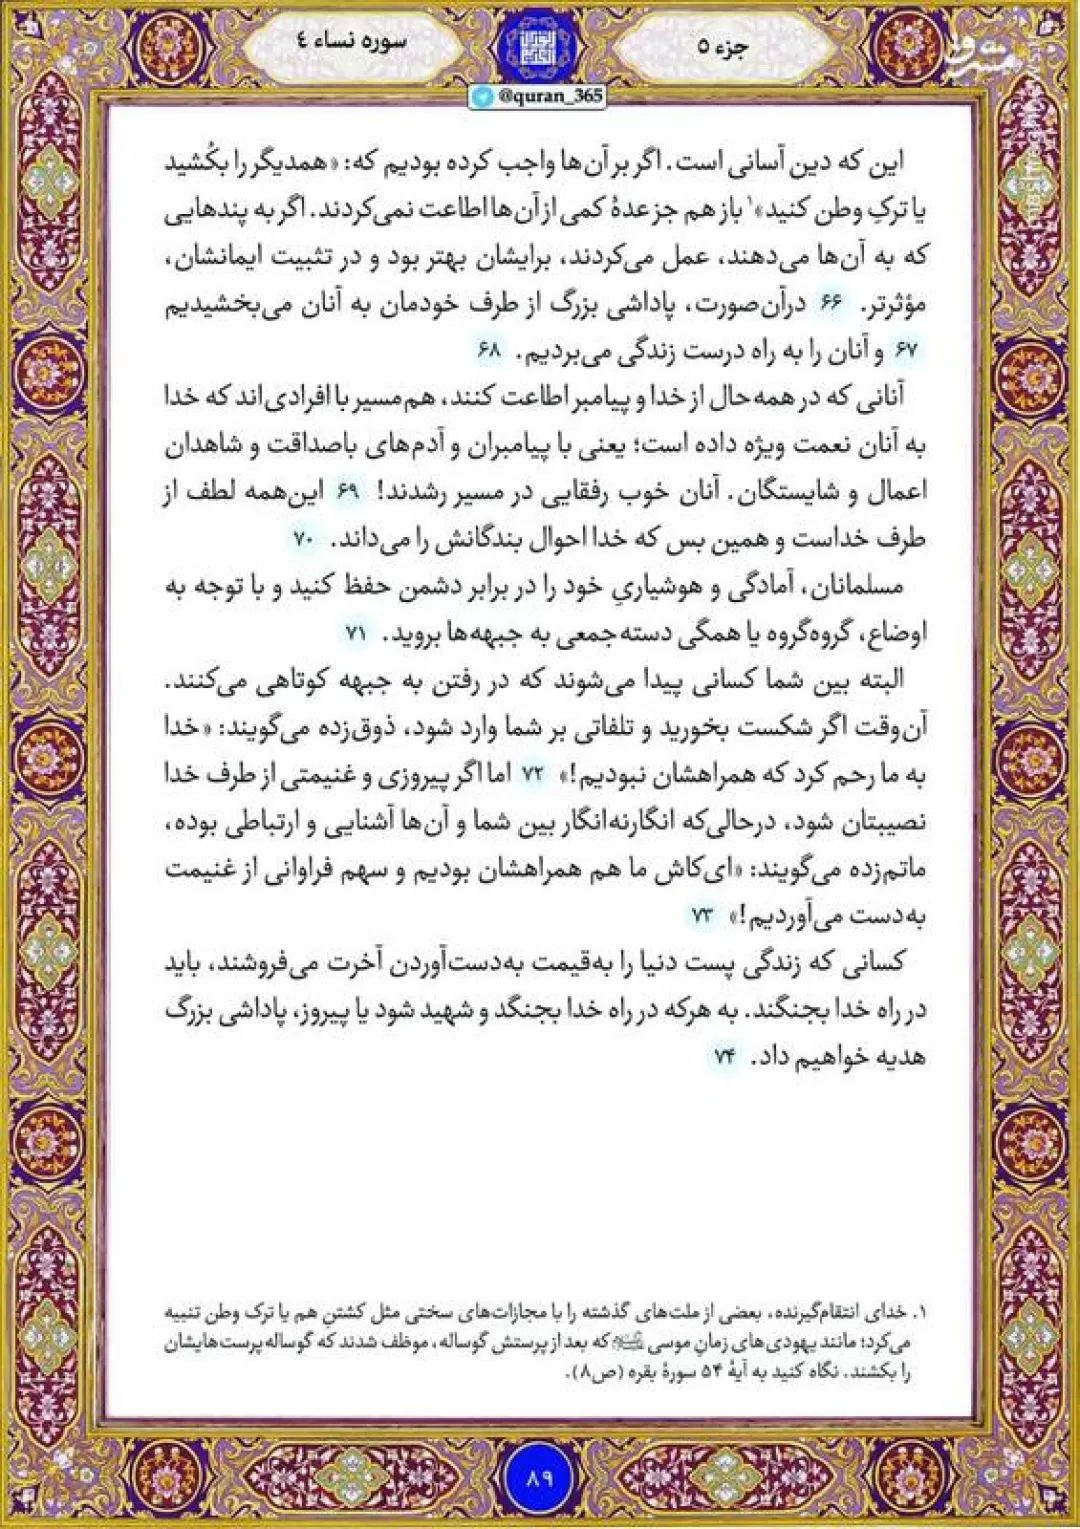 جزء ۵
سوره نساء ٤
@quran_365
مشرق
mashreghnews
این که دین آسانی است. اگر بر آن‌ها واجب کرده بودیم که: «همدیگر را بکُشید
یا ترکِ وطن کنید»۱ باز هم جز عدهٔ کمی از آن‌ها اطاعت نمی‌کردند. اگر به پندهایی
که به آن‌ها می‌دهند، عمل می‌کردند، برایشان بهتر بود و در تثبیت ایمانشان،
مؤثرتر. ۶۶ درآن‌صورت، پاداشی بزرگ از طرف خودمان به آنان می‌بخشیدیم
۶۷ و آنان را به راه درست زندگی می‌بردیم. ۶۸
آنانی که در همه‌حال از خدا و پیامبر اطاعت کنند، هم‌مسیر با افرادی‌اند که خدا
به آنان نعمت ویژه داده است؛ یعنی با پیامبران و آدم‌های باصداقت و شاهدان
اعمال و شایستگان. آنان خوب رفقایی در مسیر رشدند! ۶۹ این‌همه لطف از
طرف خداست و همین بس که خدا احوال بندگانش را می‌داند. ۷۰
مسلمانان، آمادگی و هوشیاریِ خود را در برابر دشمن حفظ کنید و با توجه به
اوضاع، گروه‌گروه یا همگی دسته‌جمعی به جبهه‌ها بروید. ۷۱
البته بین شما کسانی پیدا می‌شوند که در رفتن به جبهه کوتاهی می‌کنند.
آن‌وقت اگر شکست بخورید و تلفاتی بر شما وارد شود، ذوق‌زده می‌گویند: «خدا
به ما رحم کرد که همراهشان نبودیم!» ۷۲ اما اگر پیروزی و غنیمتی از طرف خدا
نصیبتان شود، درحالی‌که انگارنه‌انگار بین شما و آن‌ها آشنایی و ارتباطی بوده،
ماتم‌زده می‌گویند: «ای‌کاش ما هم همراهشان بودیم و سهم فراوانی از غنیمت
به‌دست می‌آوردیم!» ۷۳
کسانی که زندگی پست دنیا را به‌قیمت به‌دست‌آوردن آخرت می‌فروشند، باید
در راه خدا بجنگند. به هرکه در راه خدا بجنگد و شهید شود یا پیروز، پاداشی بزرگ
هدیه خواهیم داد. ۷۴
۱. خدای انتقام‌گیرنده، بعضی از ملت‌های گذشته را با مجازات‌های سختی مثل کشتنِ هم یا ترک وطن تنبیه
می‌کرد؛ مانند یهودی‌های زمانِ موسی که بعد از پرستش گوساله، موظف شدند که گوساله‌پرست‌هایشان
را بکشند. نگاه کنید به آیهٔ ۵۴ سورهٔ بقره (ص۸).
۸۹